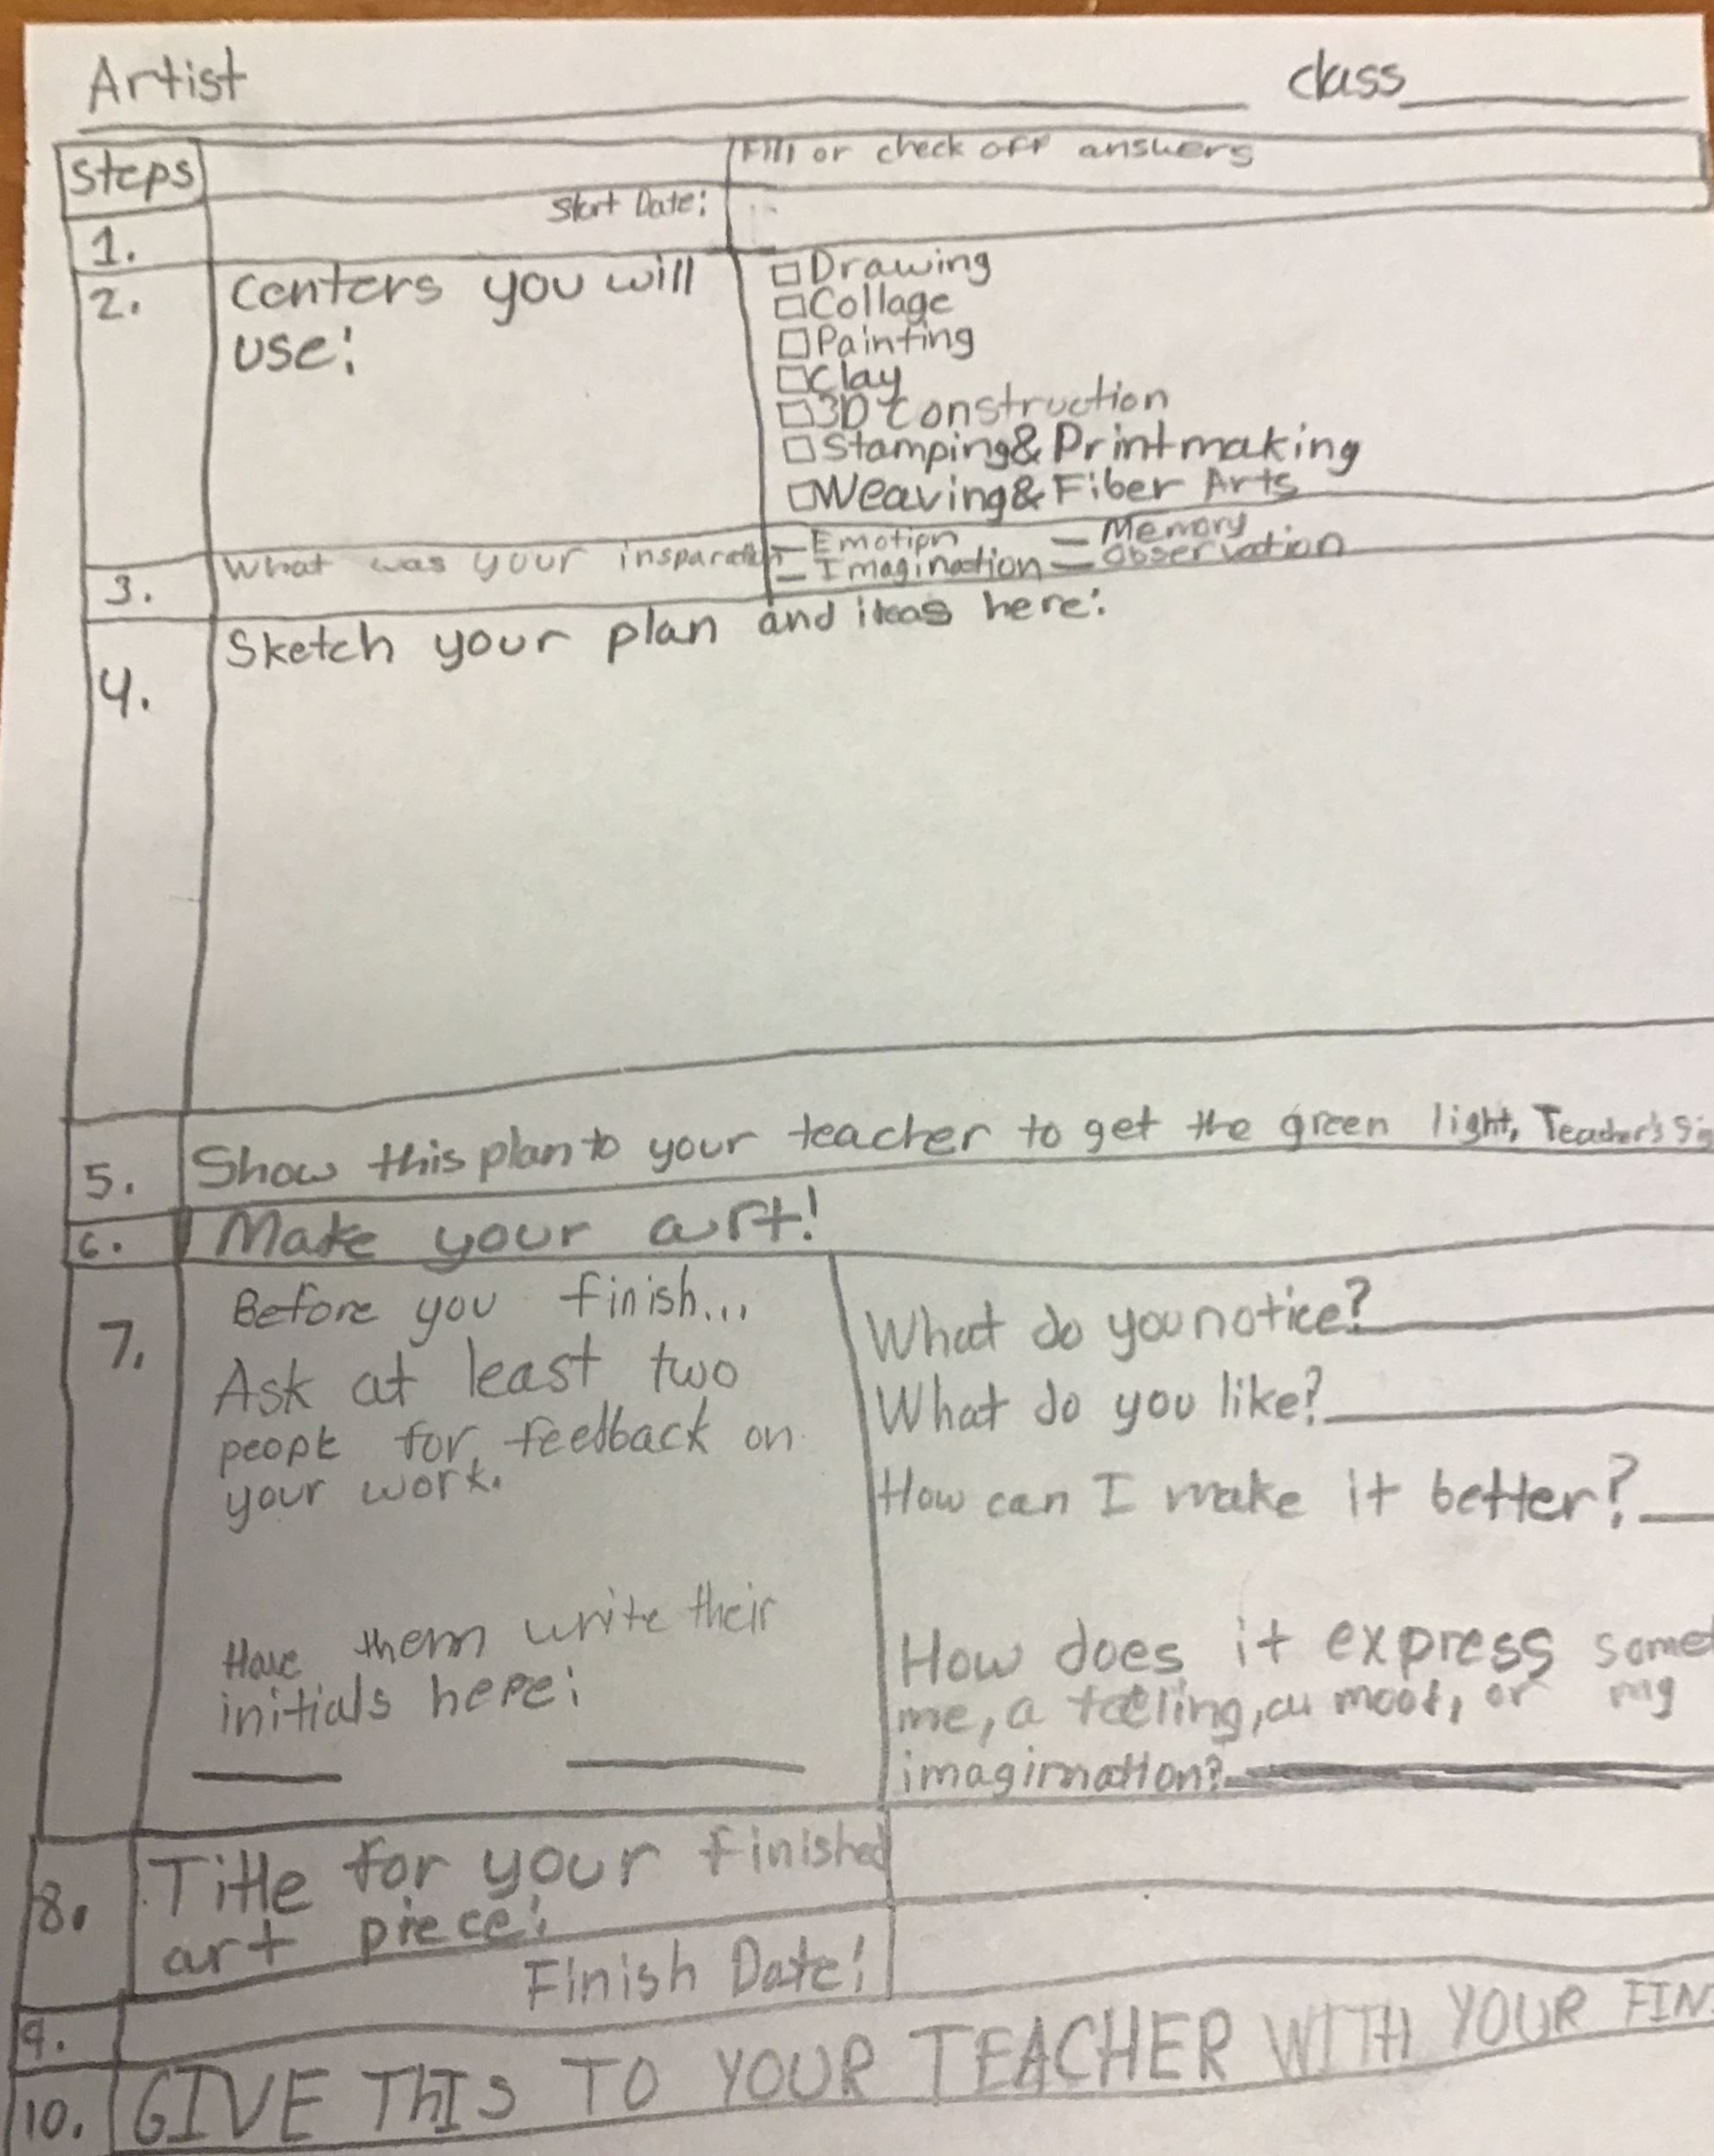 Artist class
Steps
Fill or check off answers
1. Start Date:
2. Centers you will
use:
□ Drawing
□ Collage
□ Painting
□ Clay
□ 3D Construction
□ Stamping & Printmaking
□ Weaving & Fiber Arts
3. What was your insparation
Emotion Memory
Imagination Observation
4. Sketch your plan and ideas here:
5. Show this plan to your teacher to get the green light, Teacher's Sig
6. Make your art!
7. Before you finish...
Ask at least two
people for feedback on
your work.
Have them write their
initials here:
What do you notice?
What do you like?
How can I make it better?
How does it express some
me, a feeling, a mood, or my
imagination?
8. Title for your finished
art piece:
9. Finish Date:
10. GIVE THIS TO YOUR TEACHER WITH YOUR FIN